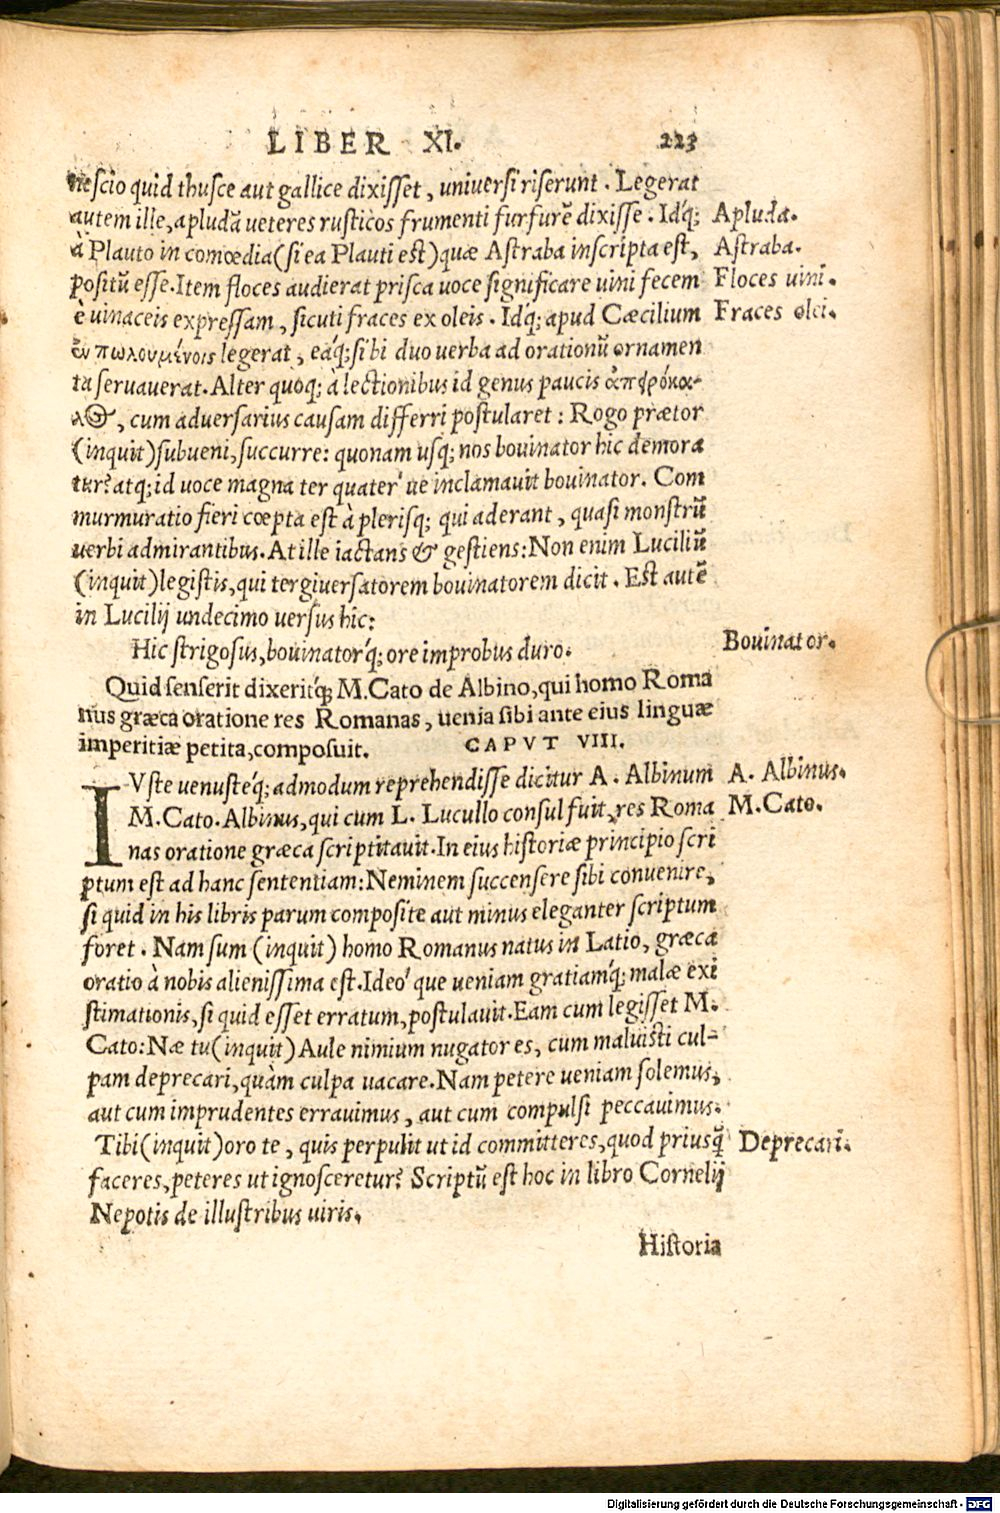 LIBER XI. 223
nescio quid thusce aut gallice dixisset, universi riserunt. Legerat
autem ille, apludā veteres rusticos frumenti furfurē dixisse. Idq́; Apluda.
à Plauto in comœdia (si ea Plauti est) quæ Astraba inscripta est, Astraba.
positū esse. Item floces audierat prisca voce significare uini fecem Floces vini.
è uinaceis expressam, sicuti fraces ex oleis. Idq́; apud Cæcilium Fraces olei.
ἐν πωλουμένοις legerat, eaq́; sibi duo verba ad orationū ornamen
ta servauerat. Alter quoq; à lectionibus id genus paucis ἀπειρόκα-
λος, cum adversarius causam differri postularet: Rogo prætor
(inquit) subueni, succurre: quonam usq; nos bovinator hic demora
tur? atq; id voce magna ter quater've inclamavit bouinator. Com
murmuratio fieri cœpta est à plerisq; qui aderant, quasi monstrū
verbi admirantibus. At ille iactans & gestiens: Non enim Luciliū
(inquit) legistis, qui tergiversatorem bouinatorem dicit. Est autē
in Lucilij undecimo versus hic:
Hic strigosus, bouinatorq́; ore improbus duro. Bovinator.
Quid senserit dixeritq́; M. Cato de Albino, qui homo Roma
nus græca oratione res Romanas, uenia sibi ante eius linguæ
imperitiæ petita, composuit. CAPVT VIII.
IVste venusteq́; admodum reprehendisse dicitur A. Albinum A. Albinus.
M. Cato. Albinus, qui cum L. Lucullo consul fuit, res Roma M. Cato.
nas oratione græca scriptitauit. In eius historiæ principio scri
ptum est ad hanc sententiam: Neminem succensere sibi convenire,
si quid in his libris parum composite aut minus eleganter scriptum
foret. Nam sum (inquit) homo Romanus natus in Latio, græca
oratio à nobis alienissima est. Ideo' que veniam gratiamq́; malæ exi
stimationis, si quid esset erratum, postulavit. Eam cum legisset M.
Cato: Næ tu (inquit) Aule nimium nugator es, cum maluisti cul-
pam deprecari, quàm culpa uacare. Nam petere veniam solemus,
aut cum imprudentes erravimus, aut cum compulsi peccavimus.
Tibi (inquit) oro te, quis perpulit ut id committeres, quod priusq̄ Deprecari.
faceres, peteres ut ignosceretur? Scriptū est hoc in libro Cornelij
Nepotis de illustribus viris.
Historia
Digitalisierung gefördert durch die Deutsche Forschungsgemeinschaft - DFG